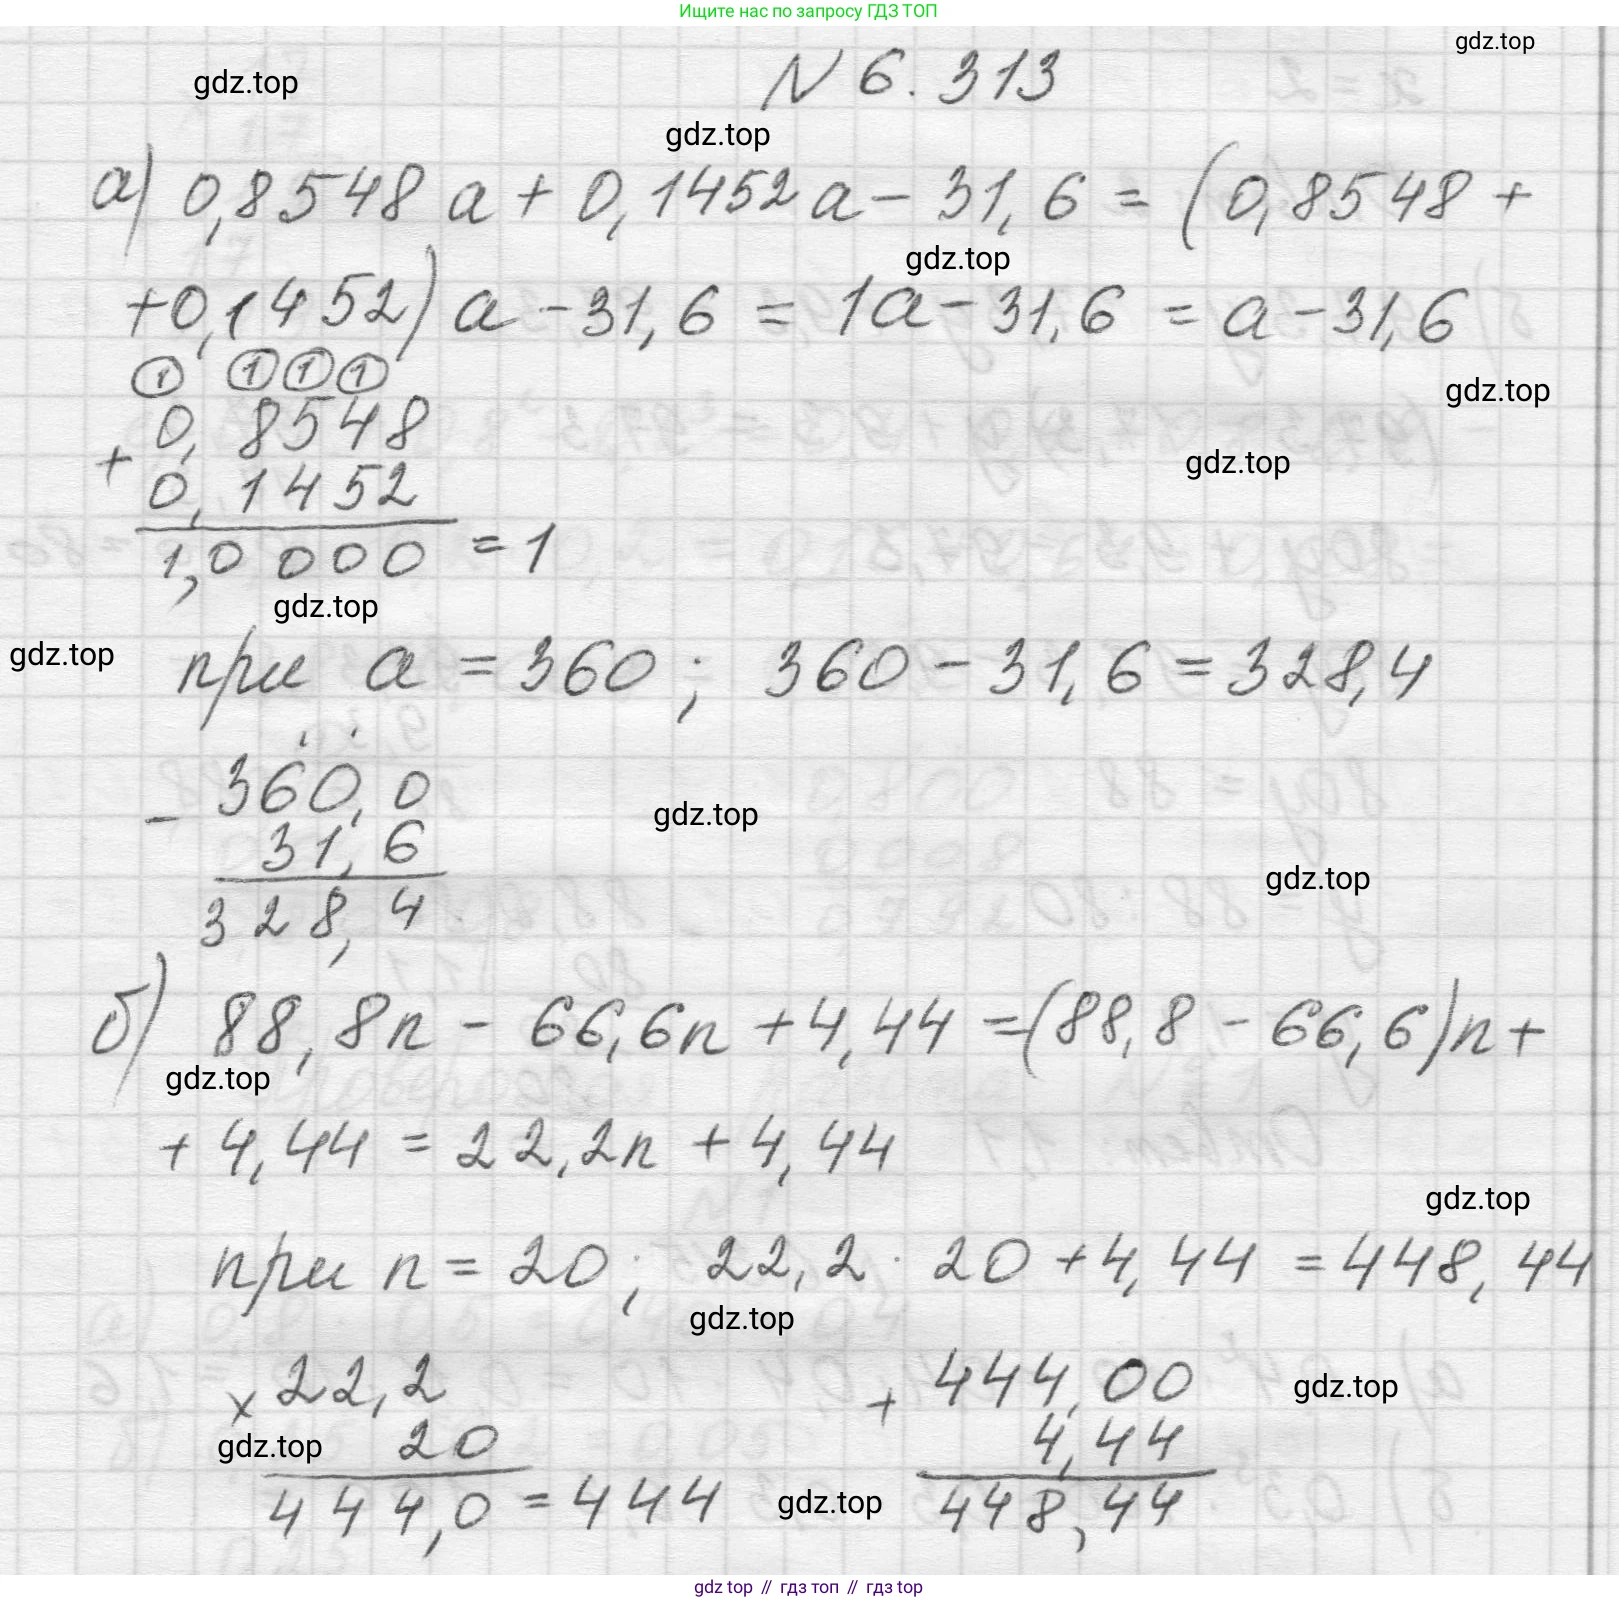 Ищите нас по запросу ГДЗ ТОП
gdz.top
N 6.313
gdz.top
gdz.top
а) 0,8548 a + 0,1452 a - 31,6 = (0,8548 +
gdz.top
+0,1452) a - 31,6 = 1a - 31,6 = a - 31,6
1 1 1 1
gdz.top
0,8548
+
gdz.top
0,1452
1,0000 = 1
gdz.top
gdz.top
при a = 360; 360 - 31,6 = 328,4
360,0
-
gdz.top
31,6
gdz.top
328,4
б) 88,8n - 66,6n + 4,44 = (88,8 - 66,6)n +
gdz.top
+ 4,44 = 22,2n + 4,44
gdz.top
при n = 20; 22,2 · 20 + 4,44 = 448,44
gdz.top
× 22,2 + 444,00
gdz.top
gdz.top 20 4,44
444,0 = 444 gdz.top 448,44
gdz top // гдз топ // гдз top